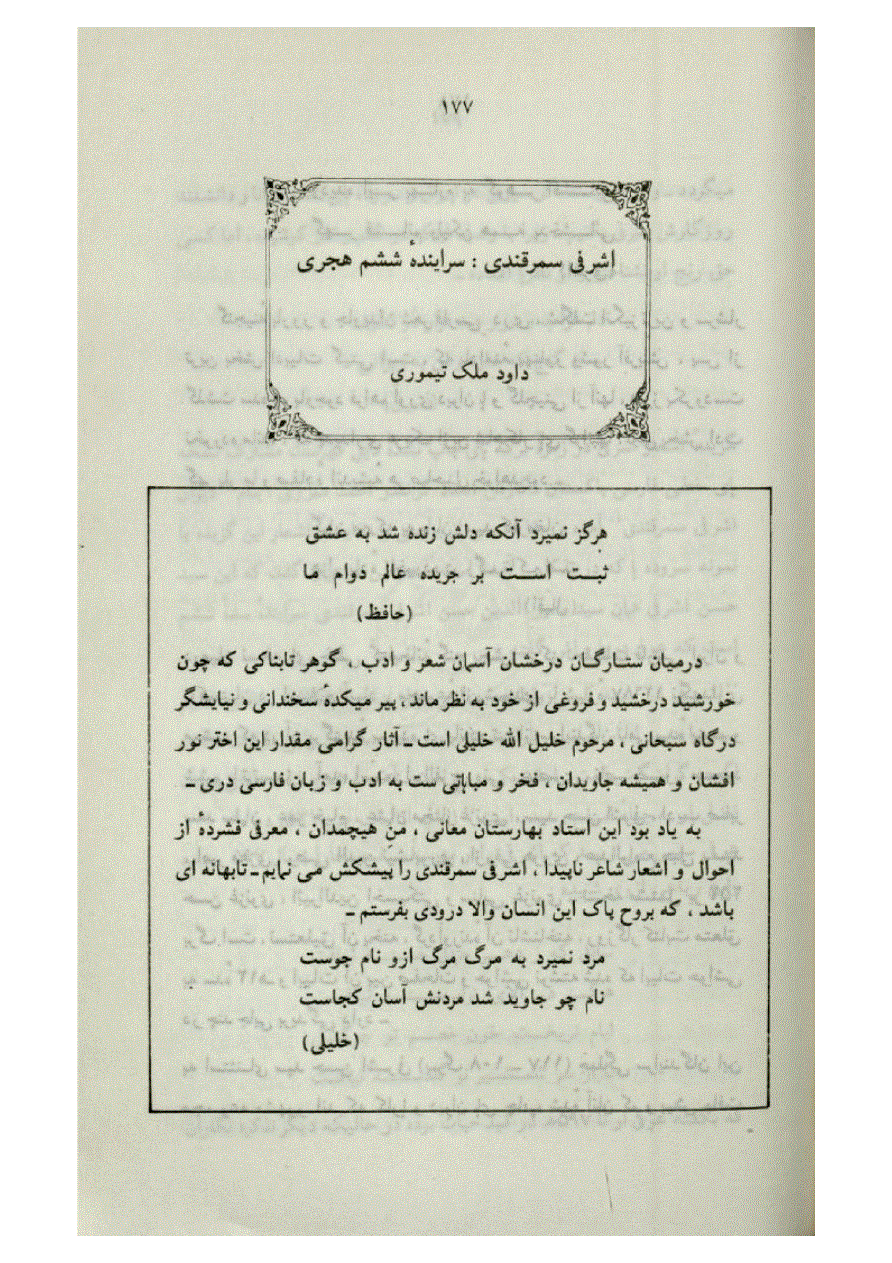 ۱۷۷
اشرفی سمرقندی : سرایندهٔ ششم هجری
داود ملک تیموری
هرگز نمیرد آنکه دلش زنده شد به عشق
ثبت است بر جریده عالم دوام ما
(حافظ)
درمیان ستارگان درخشان آسمان شعر و ادب ، گوهر تابناکی که چون
خورشید درخشید و فروغی از خود به نظر ماند ، پیر میکدهٔ سخندانی و نیایشگر
درگاه سبحانی ، مرحوم خلیل الله خلیلی است ـ آثار گرامی مقدار این اختر نور
افشان و همیشه جاویدان ، فخر و مباهاتی ست به ادب و زبان فارسی دری ـ
به یاد بود این استاد بهارستان معانی ، من هیچمدان ، معرفی فشرده از
احوال و اشعار شاعر ناپیدا ، اشرفی سمرقندی را پیشکش می نمایم ـ تابهانه ای
باشد ، که بروح پاک این انسان والا درودی بفرستم ـ
مرد نمیرد به مرگ مرگ ازو نام جوست
نام چو جاوید شد مردنش آسان کجاست
(خلیلی)